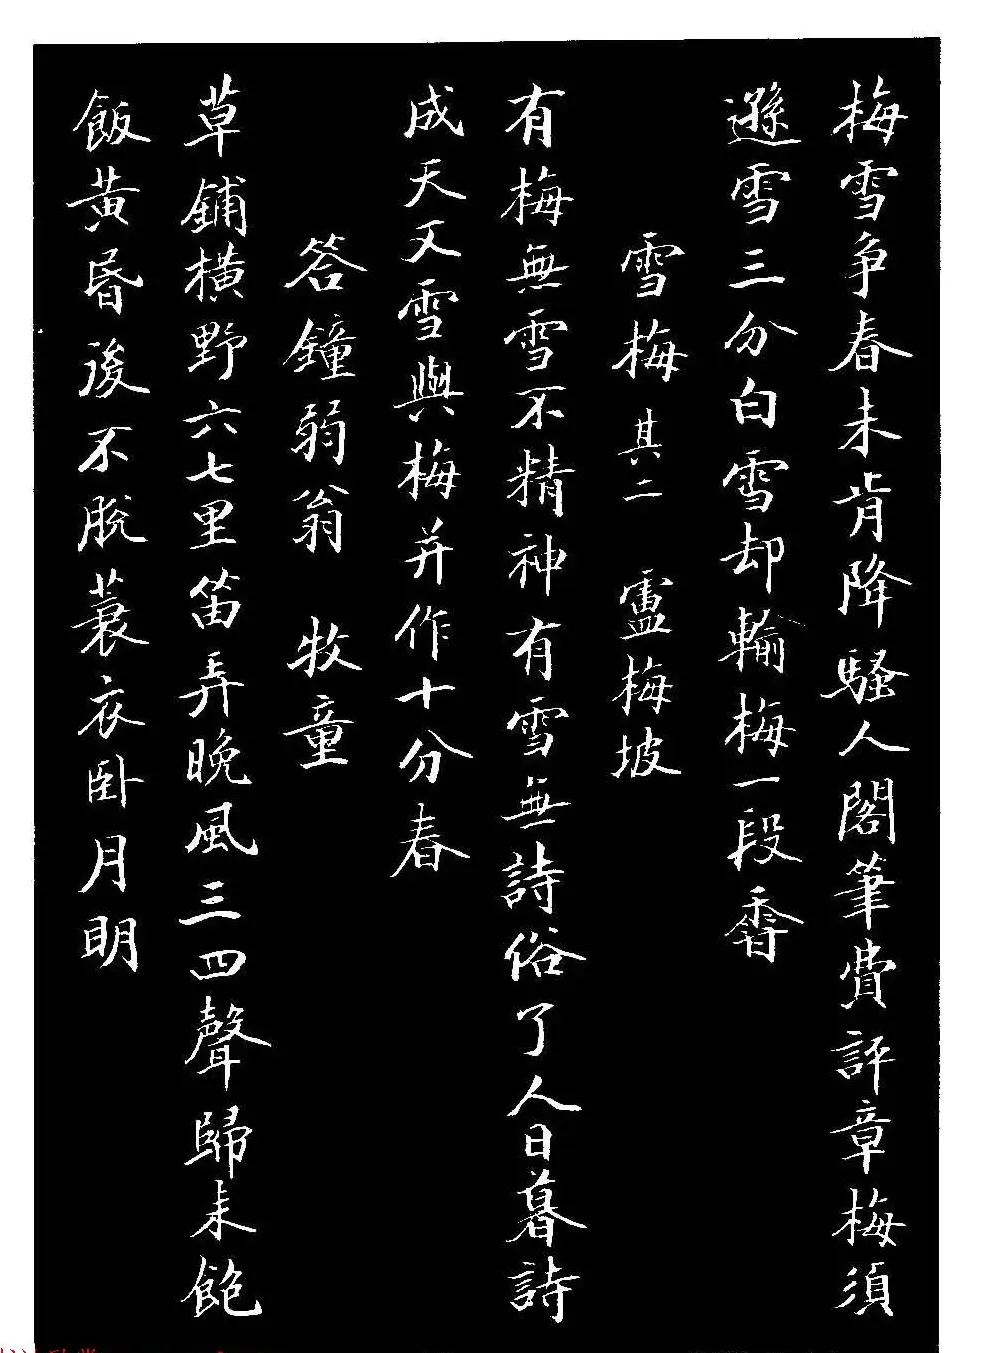 梅雪争春未肯降騷人閣筆費評章梅須
遜雪三分白雪却輸梅一段香
雪梅 其二 盧梅坡
有梅無雪不精神有雪無詩俗了人日暮詩
成天又雪與梅并作十分春
答鐘弱翁 牧童
草鋪橫野六七里笛弄晚風三四聲歸来飽
飯黄昏後不脫蓑衣卧月明